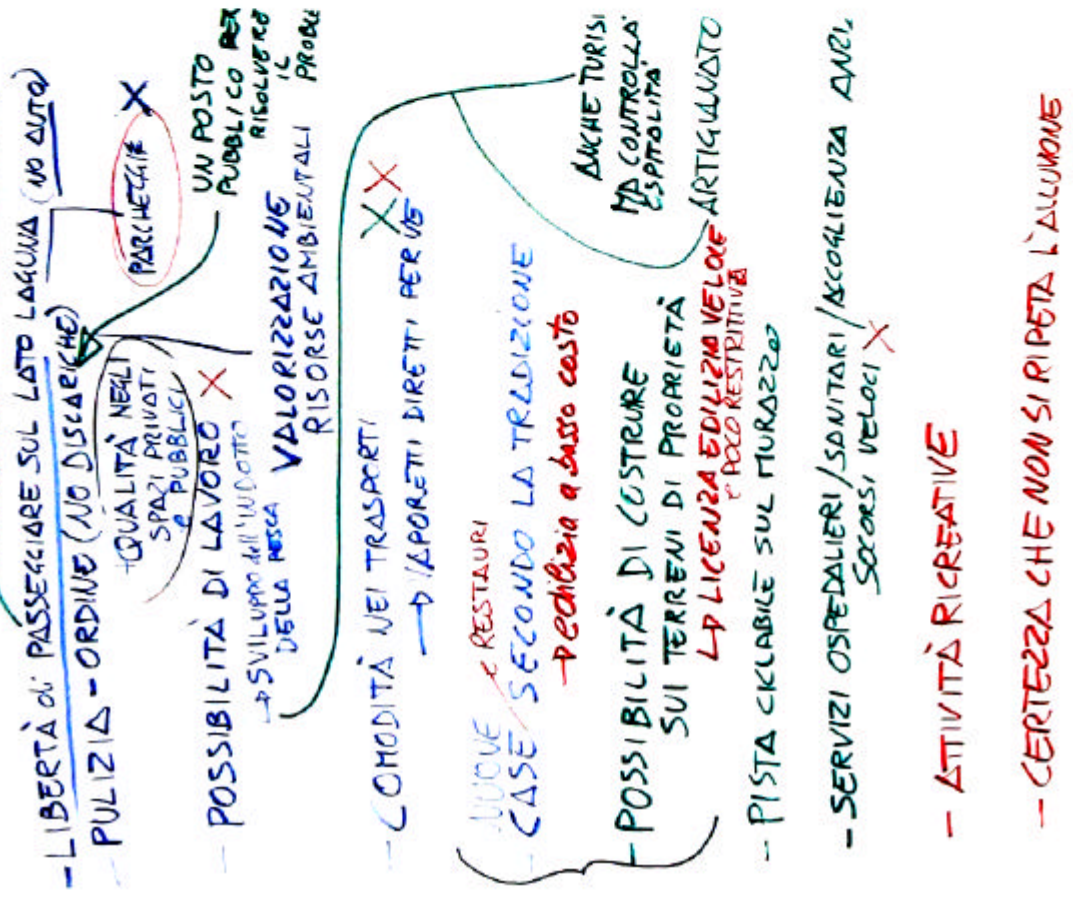 - LIBERTÀ di PASSEGGIARE SUL LATO LAGUNA (NO AUTO)
PARCHEGGIE X
- PULIZIA - ORDINE (NO DISCARICHE)
+QUALITÀ NEGLI
SPAZI PRIVATI
e PUBBLICI
UN POSTO
PUBBLICO PER
RISOLVERE
IL
PROBLE
- POSSIBILITÀ DI LAVORO X
→ SVILUPPO dell'INDOTTO
DELLA PESCA
VALORIZZAZIONE
RISORSE AMBIENTALI
- COMODITÀ NEI TRASPORTI
→ VAPORETTI DIRETTI PER VE X X
ANCHE TURISI
MA CONTROLLA
ESPITALITÀ
ARTIGIANATO
- NUOVE e RESTAURI
CASE SECONDO LA TRADIZIONE
→ edilizia a basso costo
- POSSIBILITÀ DI COSTRURE
SUI TERRENI DI PROPRIETÀ
→ LICENZA EDILIZIA VELOCE
e POCO RESTRITTIVA
- PISTA CICLABILE SUL MURAZZO
- SERVIZI OSPEDALIERI/SANITARI/ACCOGLIENZA ANZI.
SOCCORSI VELOCI X
- ATTIVITÀ RICREATIVE
- CERTEZZA CHE NON SI RIPETA L'ALLUVIONE